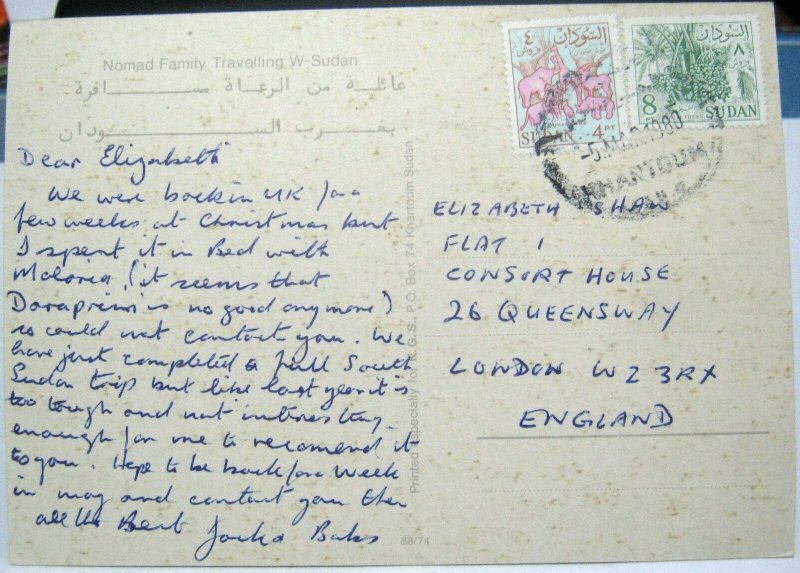 Nomad Family Travelling W-Sudan
عائلة من الرعاة مسافرة
بغرب السودان
Dear Elizabeth
We were back in UK for a
few weeks at Christmas but
I spent it in Bed with
Malarea, (it seems that
Daraprim is no good anymore)
so could not contact you. We
have just completed a full South
Sudan trip but like last year it is
too tough and not interesting
enough for me to recomend it
to you. Hope to be back for a week
in may and contact you then
all the Best
Printed especially for K.G.S. P.O. Box 74 Khartoum Sudan
88/74
٤
قروش
السودان
SUDAN
4 PT
٨
قروش
السودان
8
SUDAN
1980
KHARTOUM
ELIZABETH SHAW
FLAT 1
CONSORT HOUSE
26 QUEENSWAY
LONDON W2 3RX
ENGLAND